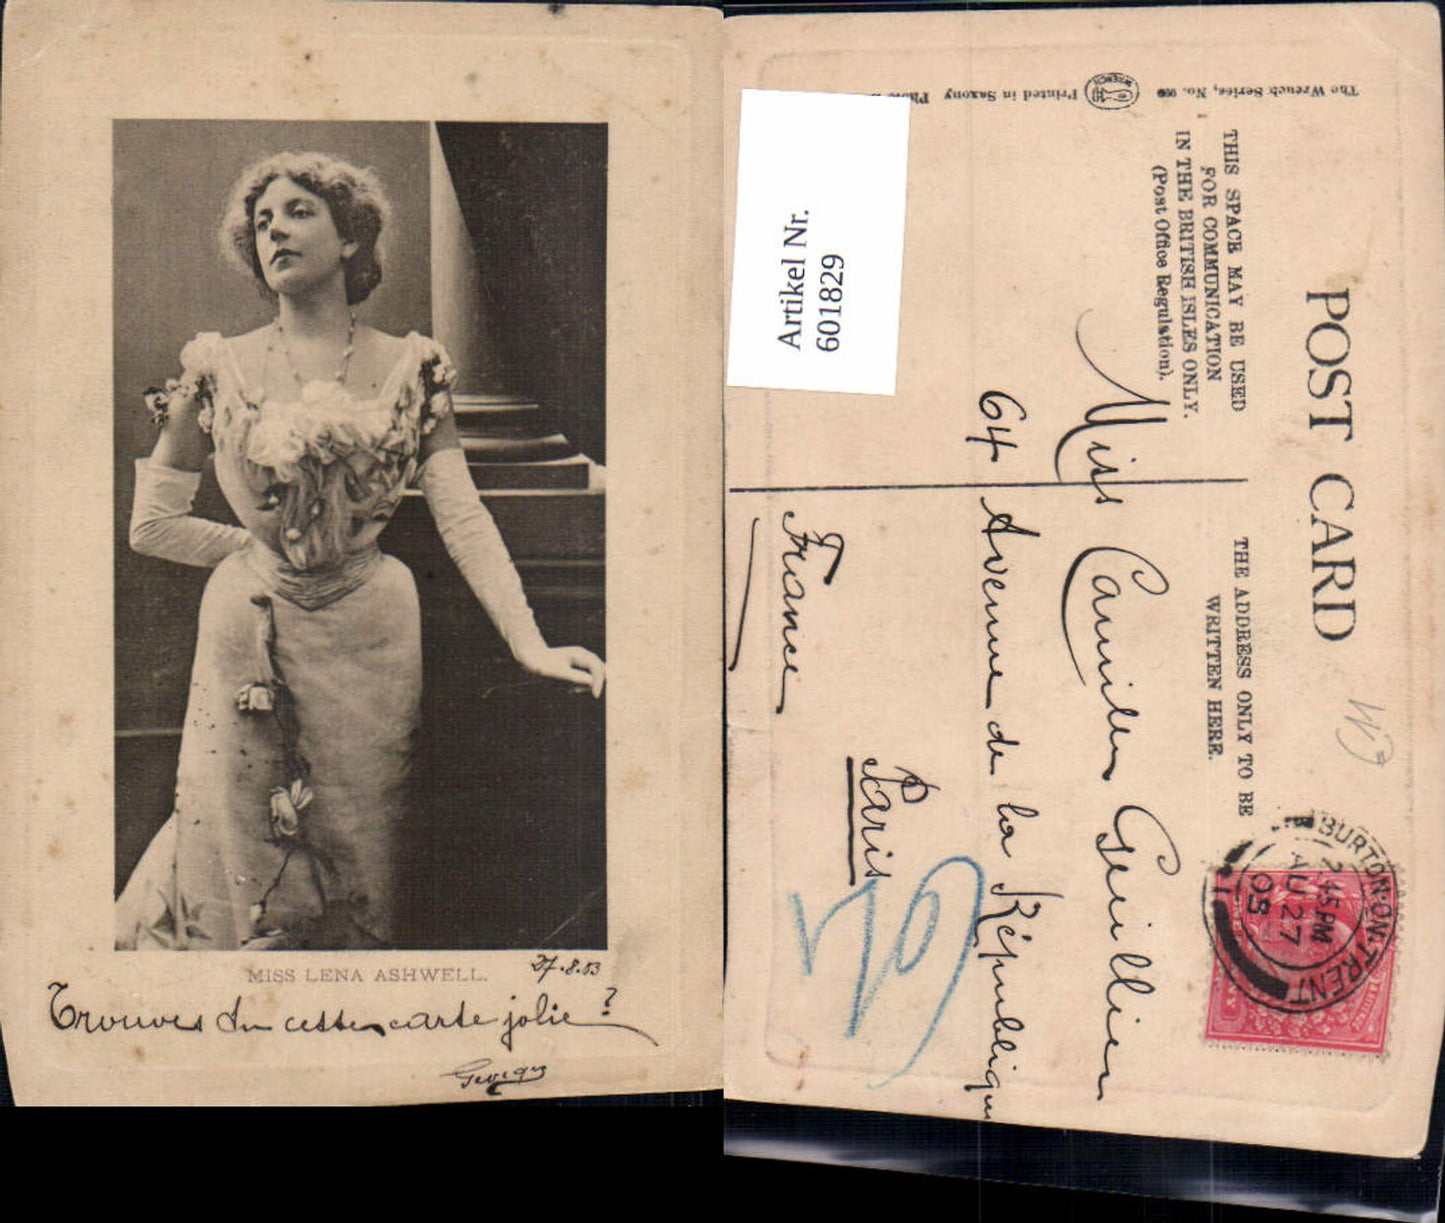 MISS LENA ASHWELL.
27.8.03
Trouves tu cette carte jolie?
Georges
Artikel Nr.
601829
The Wrench Series, No.
WRENCH
Printed in Saxony
POST CARD
THIS SPACE MAY BE USED
FOR COMMUNICATION
IN THE BRITISH ISLES ONLY.
(Post Office Regulation).
THE ADDRESS ONLY TO BE
WRITTEN HERE.
BURTON-ON-TRENT
2.45 PM
AU 27
03
Miss
64 Avenue de la République
Paris
France